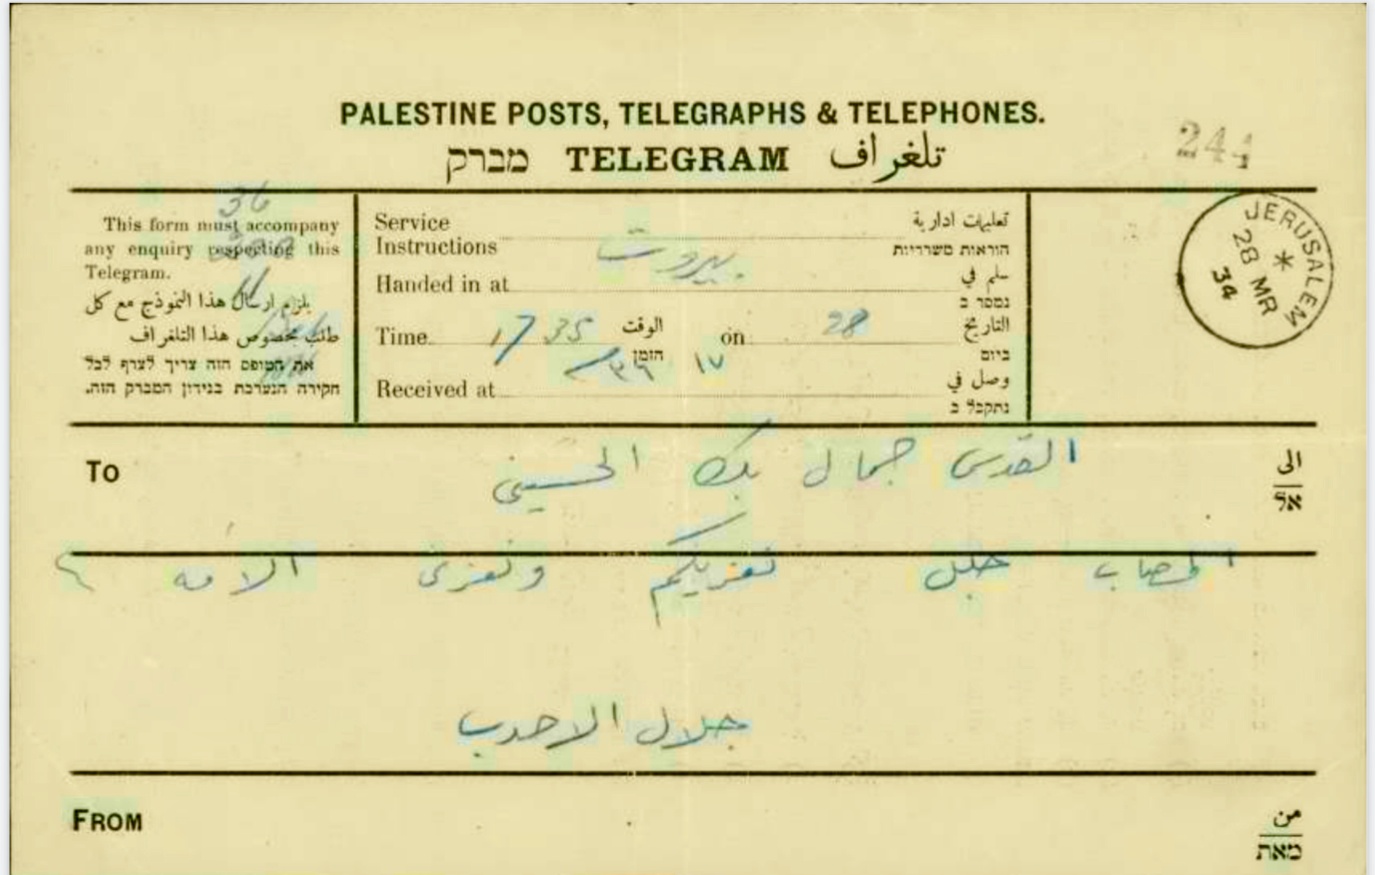 PALESTINE POSTS, TELEGRAPHS & TELEPHONES.
מברק TELEGRAM تلغراف
244
This form must accompany
any enquiry respecting this
Telegram.
يلزم ارسال هذا النموذج مع كل
طلب بخصوص هذا التلغراف
את הטופס הזה צריך לצרף לכל
חקירה הנערכת בנידון המברק הזה.
36
Service Instructions تعليمات ادارية
הוראות משרדיות
بيروت
Handed in at سلم في
נמסר ב
Time 17 35 الوقت on 28 التاريخ
הזמן ביום
١٧ ٣٦
Received at وصل في
נתקבל ב
JERUSALEM
28 MR
34
To القدس جمال بك الحسيني الى
אל
المصاب جلل نعزيكم ونعزي الامه
جلال الاحدب
FROM من
מאת